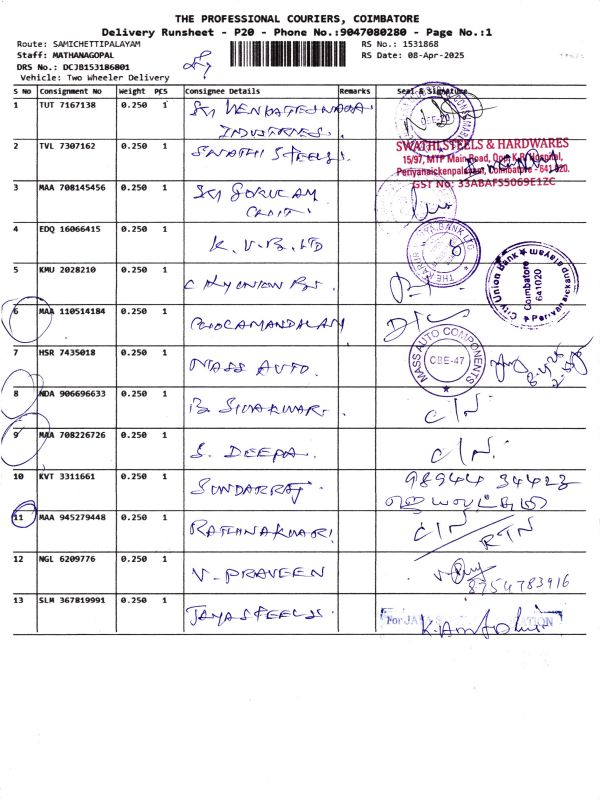 THE PROFESSIONAL COURIERS, COIMBATORE
Delivery Runsheet - P20 - Phone No.:9047080280 - Page No.:1
Route: SAMICHETTIPALAYAM RS No.: 1531868
Staff: MATHANAGOPAL RS Date: 08-Apr-2025
DRS No.: DCJB153186801
Vehicle: Two Wheeler Delivery
S No Consignment No Weight PCS Consignee Details Remarks Seal & Signature
1 TUT 7167138 0.250 1 SRI VENKATESWARA
INDUSTRIES.
2 TVL 7307162 0.250 1 SWATHI STEELS. SWATHI STEELS & HARDWARES
15/97, MTP Main Road, Opp K.R. Hospital,
Periyanaickenpalayam, Coimbatore - 641 020.
GST No: 33ABAFS5069E1ZC
3 MAA 708145456 0.250 1 SRI GOKULAM
4 EDQ 16066415 0.250 1 K. V. B. LTD
5 KMU 2028210 0.250 1 CITY UNION City Union Bank
Coimbatore
641020
6 MAA 110514184 0.250 1 CHOLAMANDALAM
7 HSR 7435018 0.250 1 MASS AUTO. MASS AUTO COMPONENTS
CBE-47
8 NDA 906696633 0.250 1 B. SIVAKUMAR. C/N.
9 MAA 708226726 0.250 1 S. DEEPA. C/N.
10 KVT 3311661 0.250 1 SUNDARRAJ. 98944 34423
11 MAA 945279448 0.250 1 RATHNAKUMAR C/N
RTN
12 NGL 6209776 0.250 1 V. PRAVEEN 8754783916
13 SLM 367819991 0.250 1 JAYA STEELS For JAYA